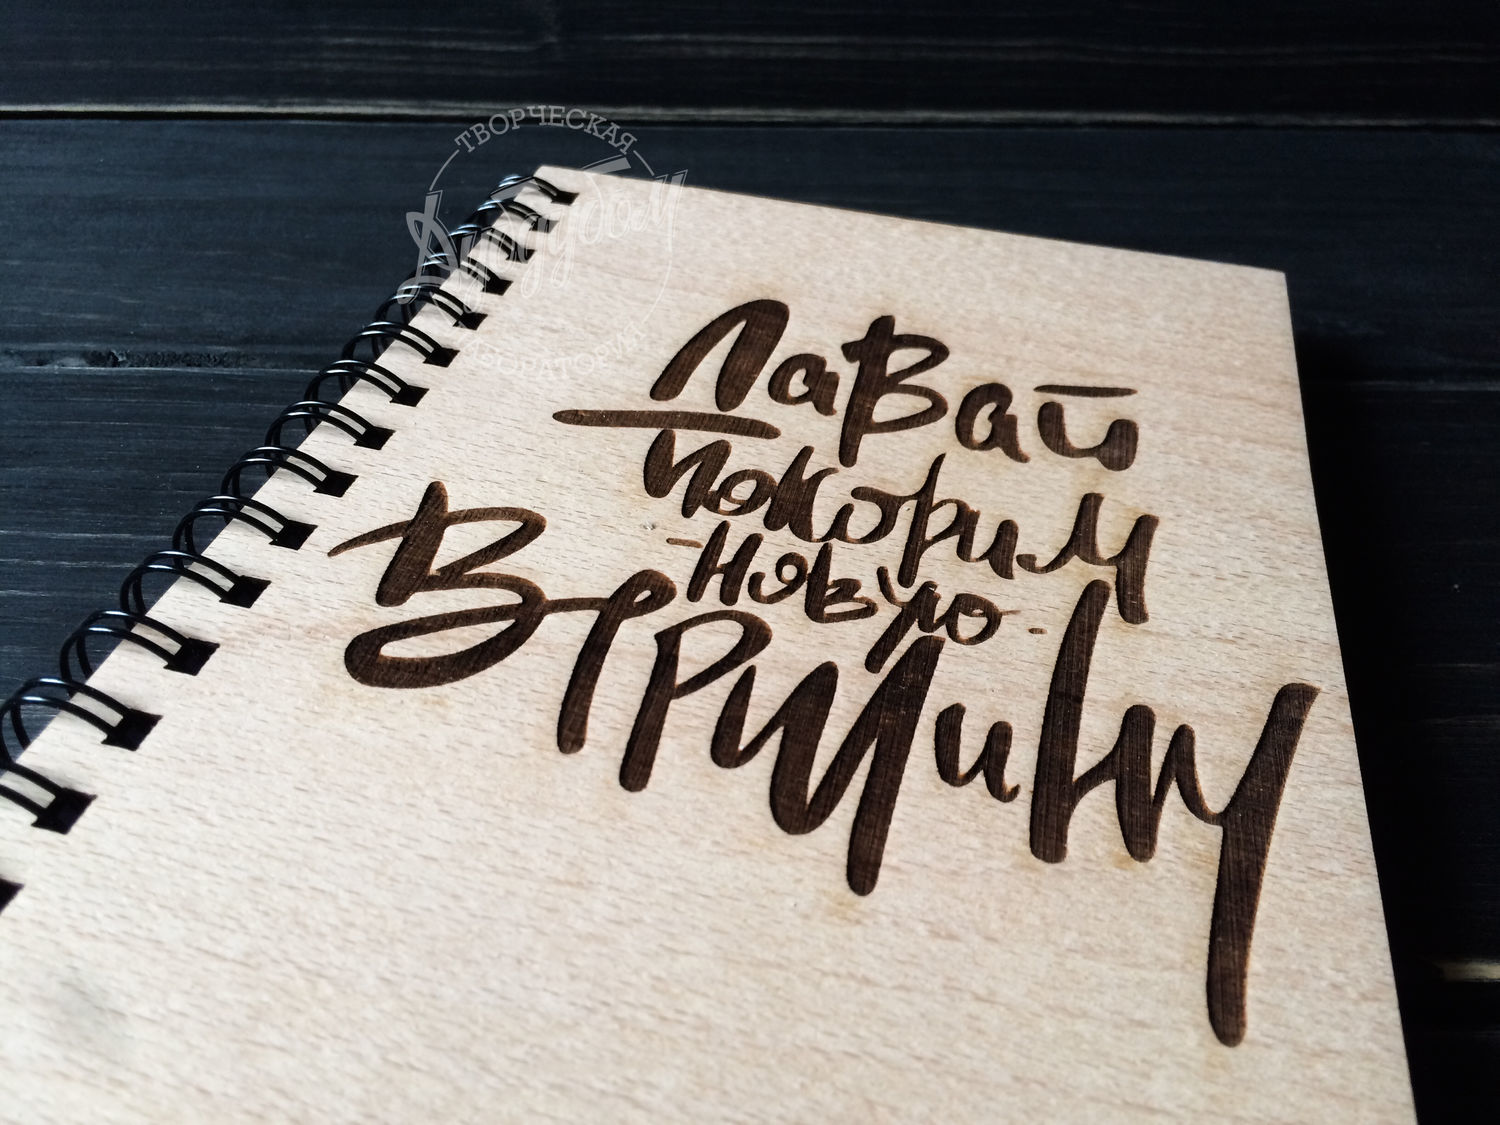 ТВОРЧЕСКАЯ
ЛАБОРАТОРИЯ
Давай
покорим
-новую-
Вершину